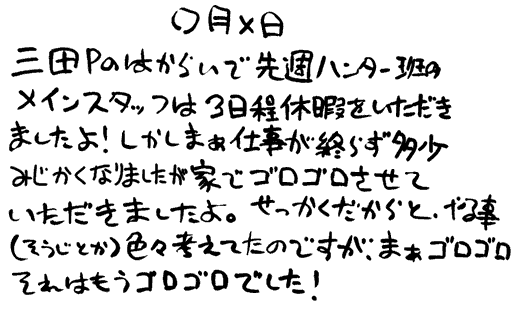 〇月×日
三田Pのはからいで先週ハンター班の
メインスタッフは3日程休暇をいただき
ましたよ!しかしまぁ仕事が終らず多少
みじかくなりましたが家でゴロゴロさせて
いただきましたよ。せっかくだからと、やる事
(そうじとか)色々考えてたのですが、まぁゴロゴロ
それはもうゴロゴロでした!